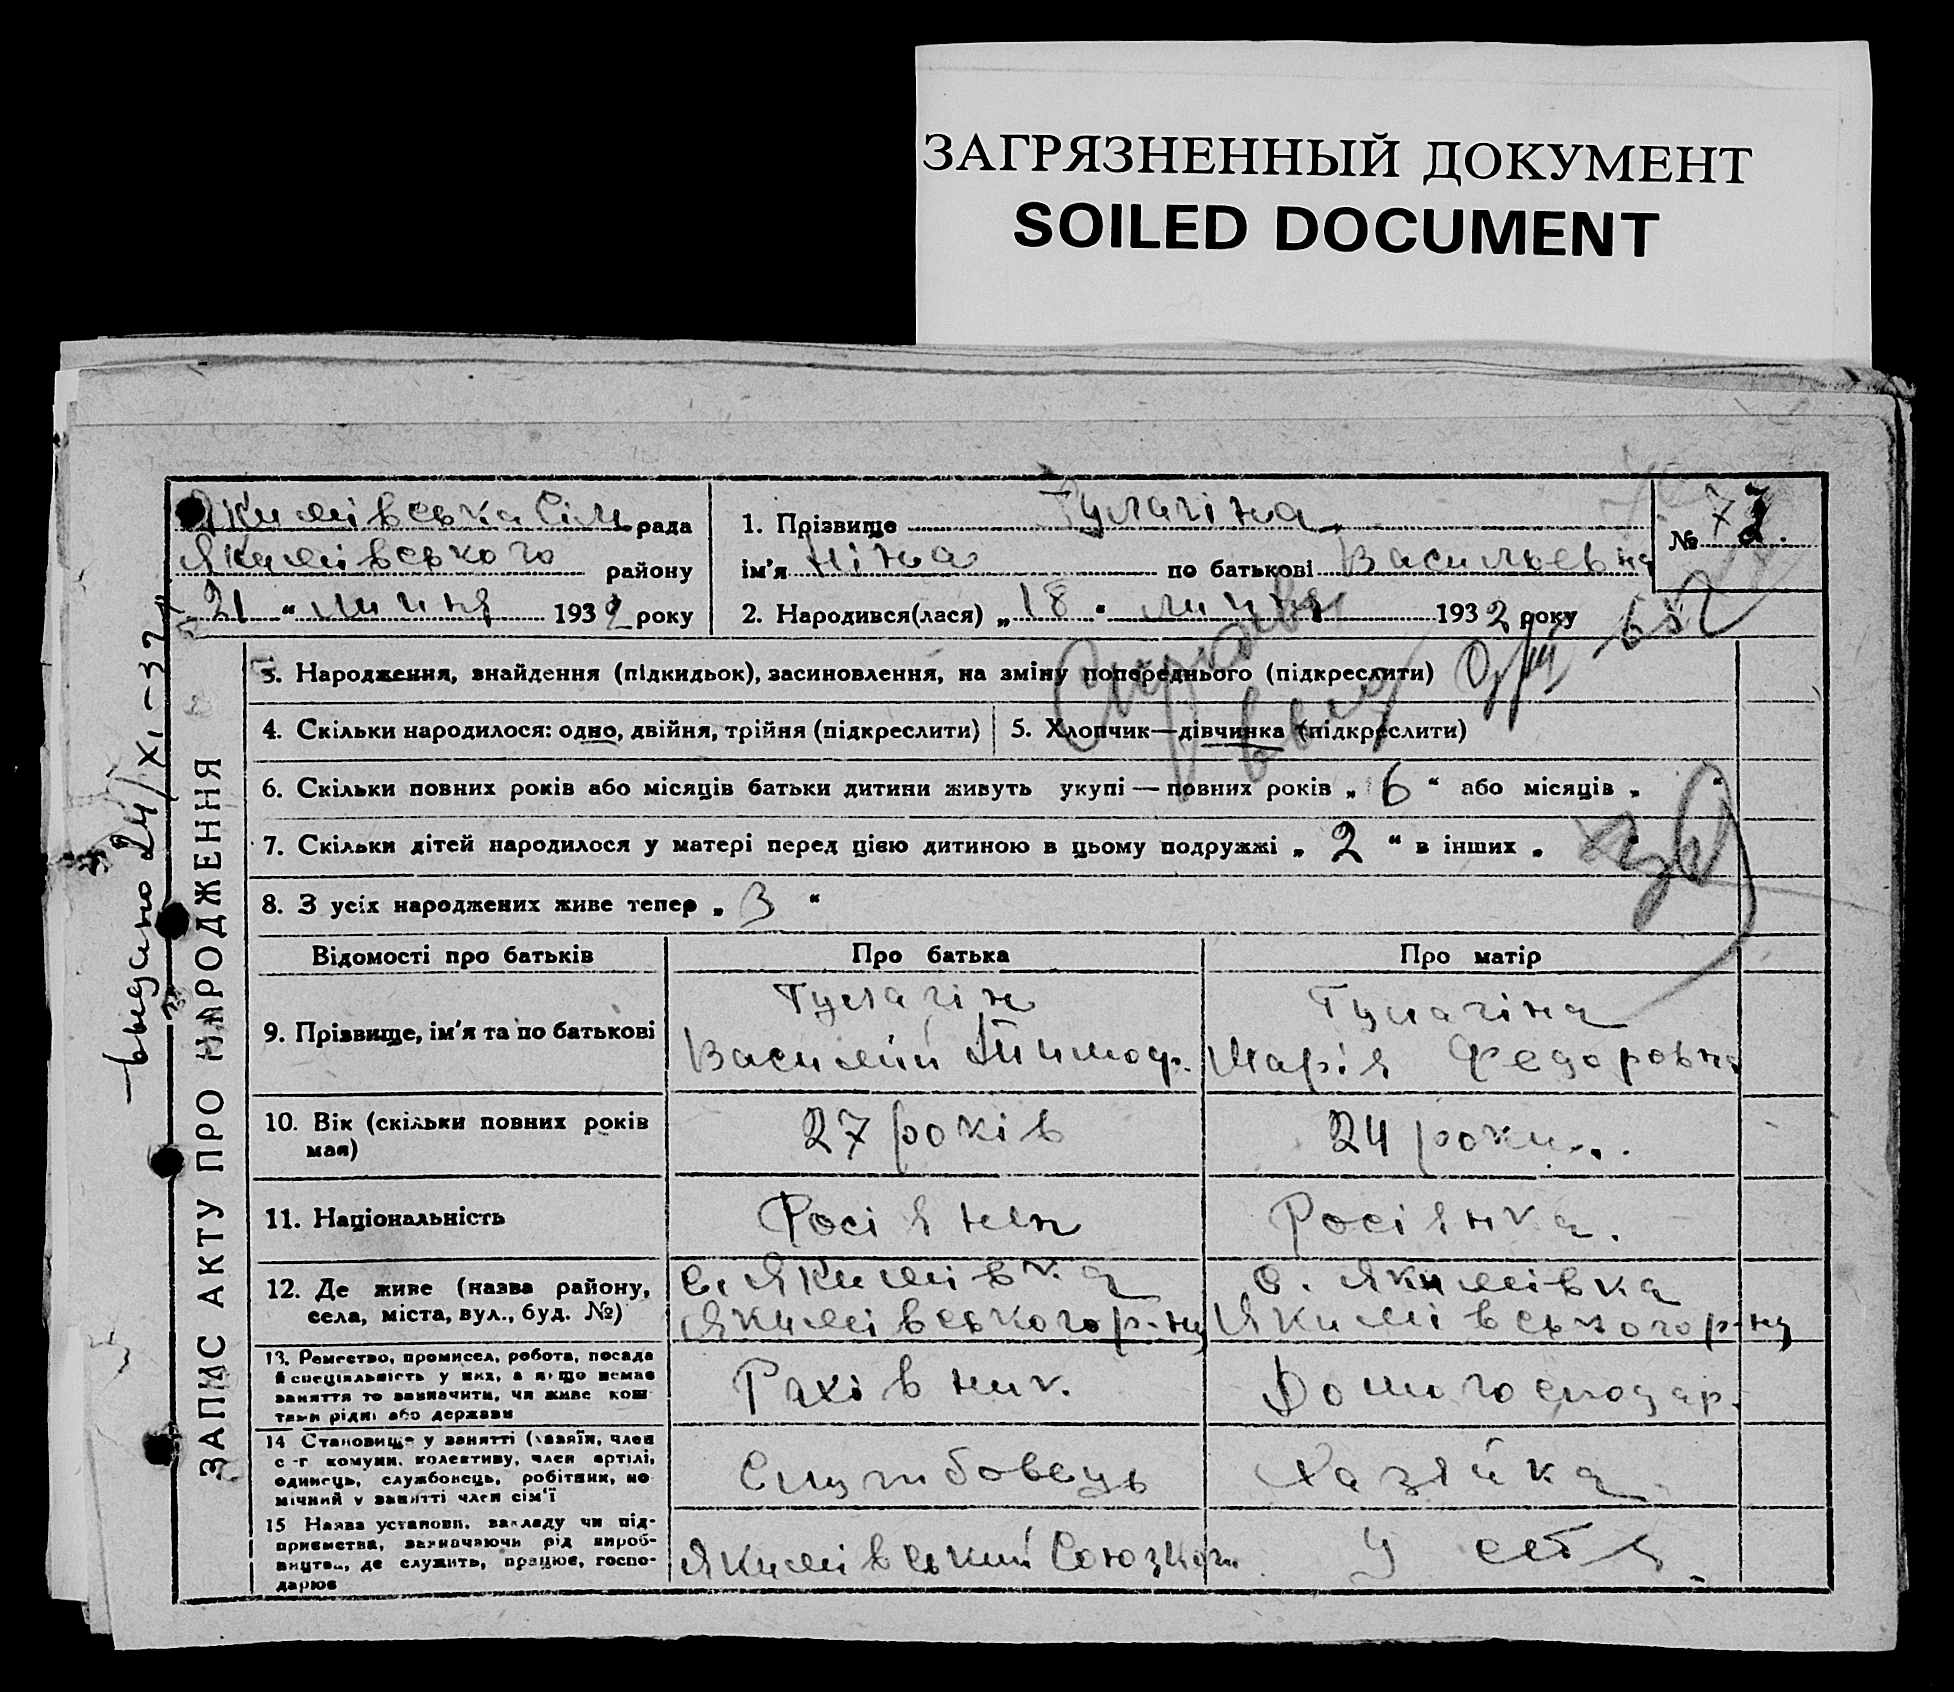 ЗАГРЯЗНЕННЫЙ ДОКУМЕНТ
SOILED DOCUMENT
Якимівська Сіл. рада
Якимівського району
21 " липня 1932 року
1. Прізвище Гулагіна
ім'я Ніна по батькові Васильевна
№ 72.
2. Народився(лася) „18" липня 1932 року
3. Народження, знайдення (підкидьок), засиновлення, на зміну попереднього (підкреслити)
4. Скільки народилося: одно, двійня, трійня (підкреслити) 5. Хлопчик—дівчинка (підкреслити)
6. Скільки повних років або місяців батьки дитини живуть укупі — повних років „ 6 " або місяців „ "
7. Скільки дітей народилося у матері перед цією дитиною в цьому подружжі „ 2 " в інших „
8. З усіх народжених живе тепер „ 3 "
ЗАПИС АКТУ ПРО НАРОДЖЕННЯ
выдано 24/XI-37
Відомості про батьків Про батька Про матір
9. Прізвище, ім'я та по батькові
Гулагін
Василій Тимоф.
Гулагіна
Марія Федоровна
10. Вік (скільки повних років
мав)
27 років
24 роки.
11. Національність
Росіянен
Росіянка.
12. Де живе (назва району,
села, міста, вул., буд. №)
С. Якимівка
Якимівського р-ну
С. Якимівка
Якимівського р-ну
13. Ремество, промисел, робота, посада
й спеціяльність у них, а якщо немає
заняття то зазначити, чи живе кош
тами рідні або держави
Рахівник.
Домогосподар.
14 Становище у занятті (хазяїн, член
с-г комуни, колективу, член артілі,
одинець, службовець, робітник, по
мічний у занятті член сім'ї
Службовець
Хазяйка
15 Назва установи, закладу чи під-
приємства, зазначаючи рід вироб-
ництва, де служить, працює, госпо-
дарює
Якимівський
У себя.